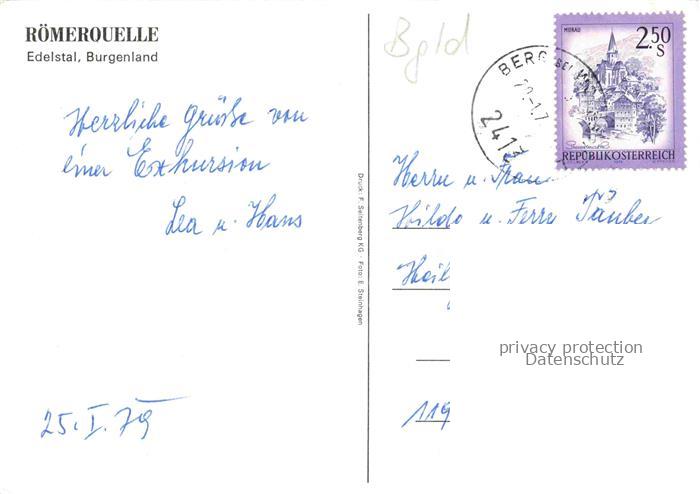 RÖMERQUELLE
Edelstal, Burgenland
Herrliche Grüße von
einer Exkursion
Lea u. Hans
25. I. 79
Druck: F. Seitenberg KG · Foto: E. Steinhagen
Bgld
BERG BEI
2413
MURAU
2.50
S
REPUBLIK ÖSTERREICH
Herrn u. Frau
Hilde u. Ferry Täuber
119
privacy protection
Datenschutz